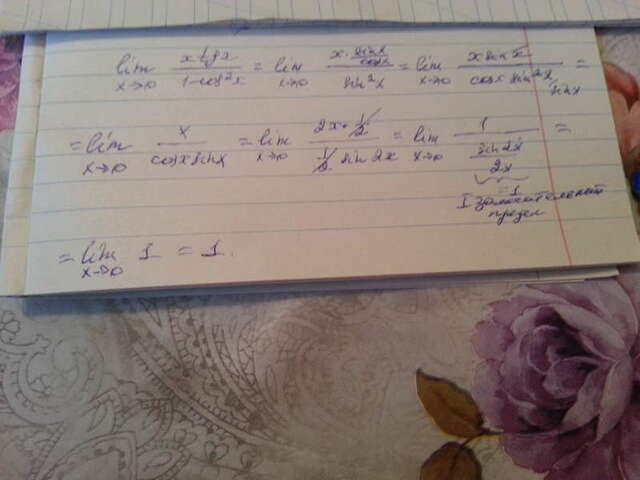 lim x→0 x tg x / 1-cos²x = lim x→0 x · sinx/cosx / sin²x = lim x→0 x sin x / cosx sin²x =
sin x
= lim x→0 x / cosx sinx = lim x→0 2x · 1/2 / 1/2 sin 2x = lim x→0 1 / sin 2x / 2x =
= 1
I замечательный
предел
= lim x→0 1 = 1.